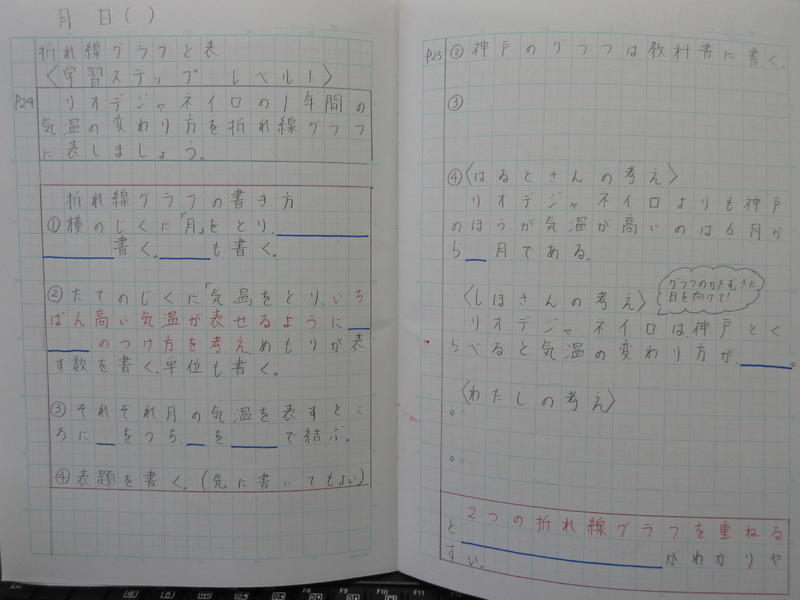 月 日( )
折れ線グラフと表
〈学習ステップ レベル1〉
P24 リオデジャネイロの1年間の
気温の変わり方を折れ線グラフ
に表しましょう。
折れ線グラフの書き方
①横のじくに「月」をとり、
書く。 も書く。
②たてのじくに「気温」をとり、いち
ばん高い気温が表せるように
のつけ方を考えめもりが表
す数を書く、単位も書く。
③それぞれ月の気温を表すとこ
ろに をうち、 を で結ぶ。
④表題を書く。(先に書いてもよい)
P25 ②神戸のグラフは教科書に書く。
③
④〈はるとさんの考え〉
リオデジャネイロよりも神戸
のほうが気温が高いのは6月か
ら 月である。
〈しほさんの考え〉
グラフのかたむきに
目を向けて!
リオデジャネイロは、神戸とく
らべると気温の変わり方が、 。
〈わたしの考え〉
。
。
2つの折れ線グラフを重ねる
と がわかりや
すい。
F8
F9
F10
F11